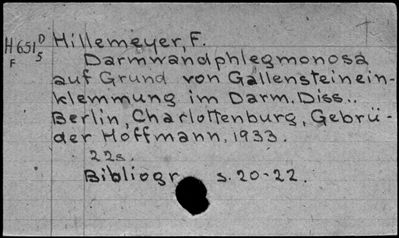 H651 D Hillemeyer, F.
F 5 Darmwandphlegmonosa
auf Grund von Gallensteinein-
klemmung im Darm. Diss..
Berlin, Charlottenburg, Gebrü-
der Hoffmann, 1933.
22s.
Bibliogr. s. 20-22.